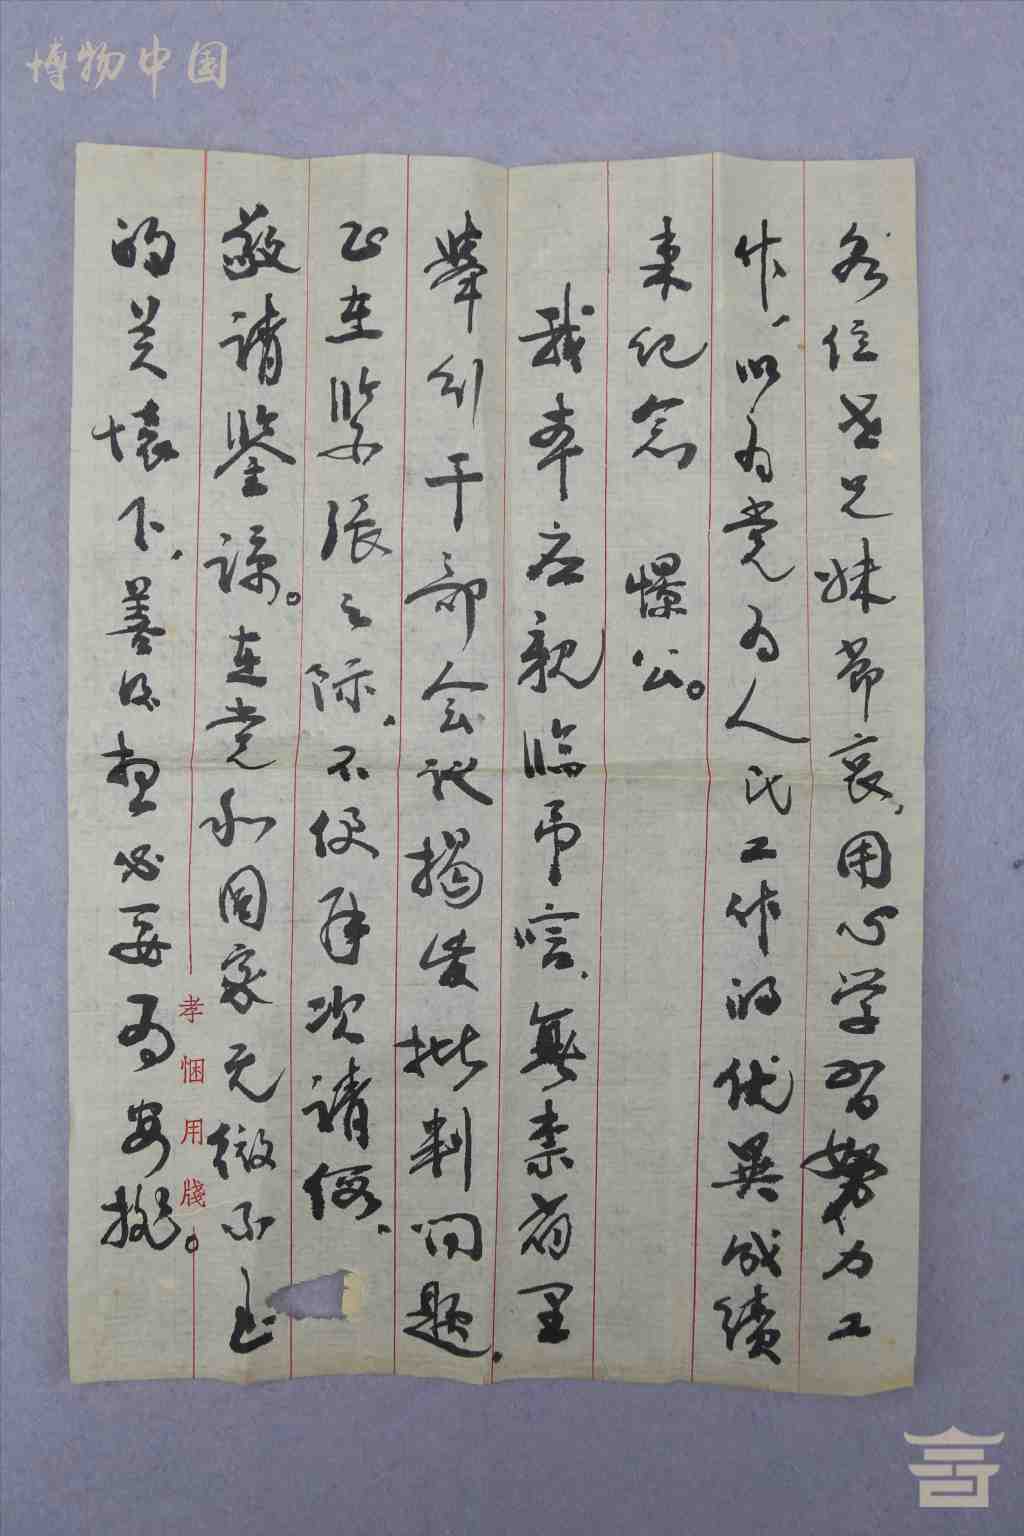 博物中国
各位世兄妹节哀，用心学習努力工
作，以为党为人民工作的优異成績
来纪念 憬公。
我本应親临吊唁，無柰省里
举行干部会议揭发批判问题，
正在紧張之际，不便再次请假，
敬请鉴谅。在党和国家无微不至
的关懷下，善后想必妥为安排。
孝悃用牋